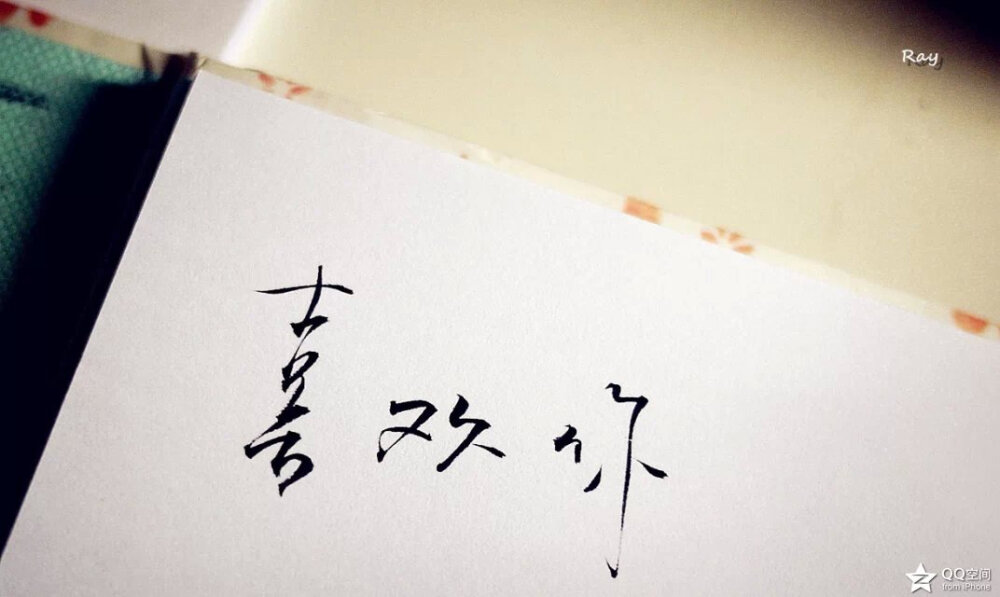 Ray
喜欢你
QQ空间
from iPhone